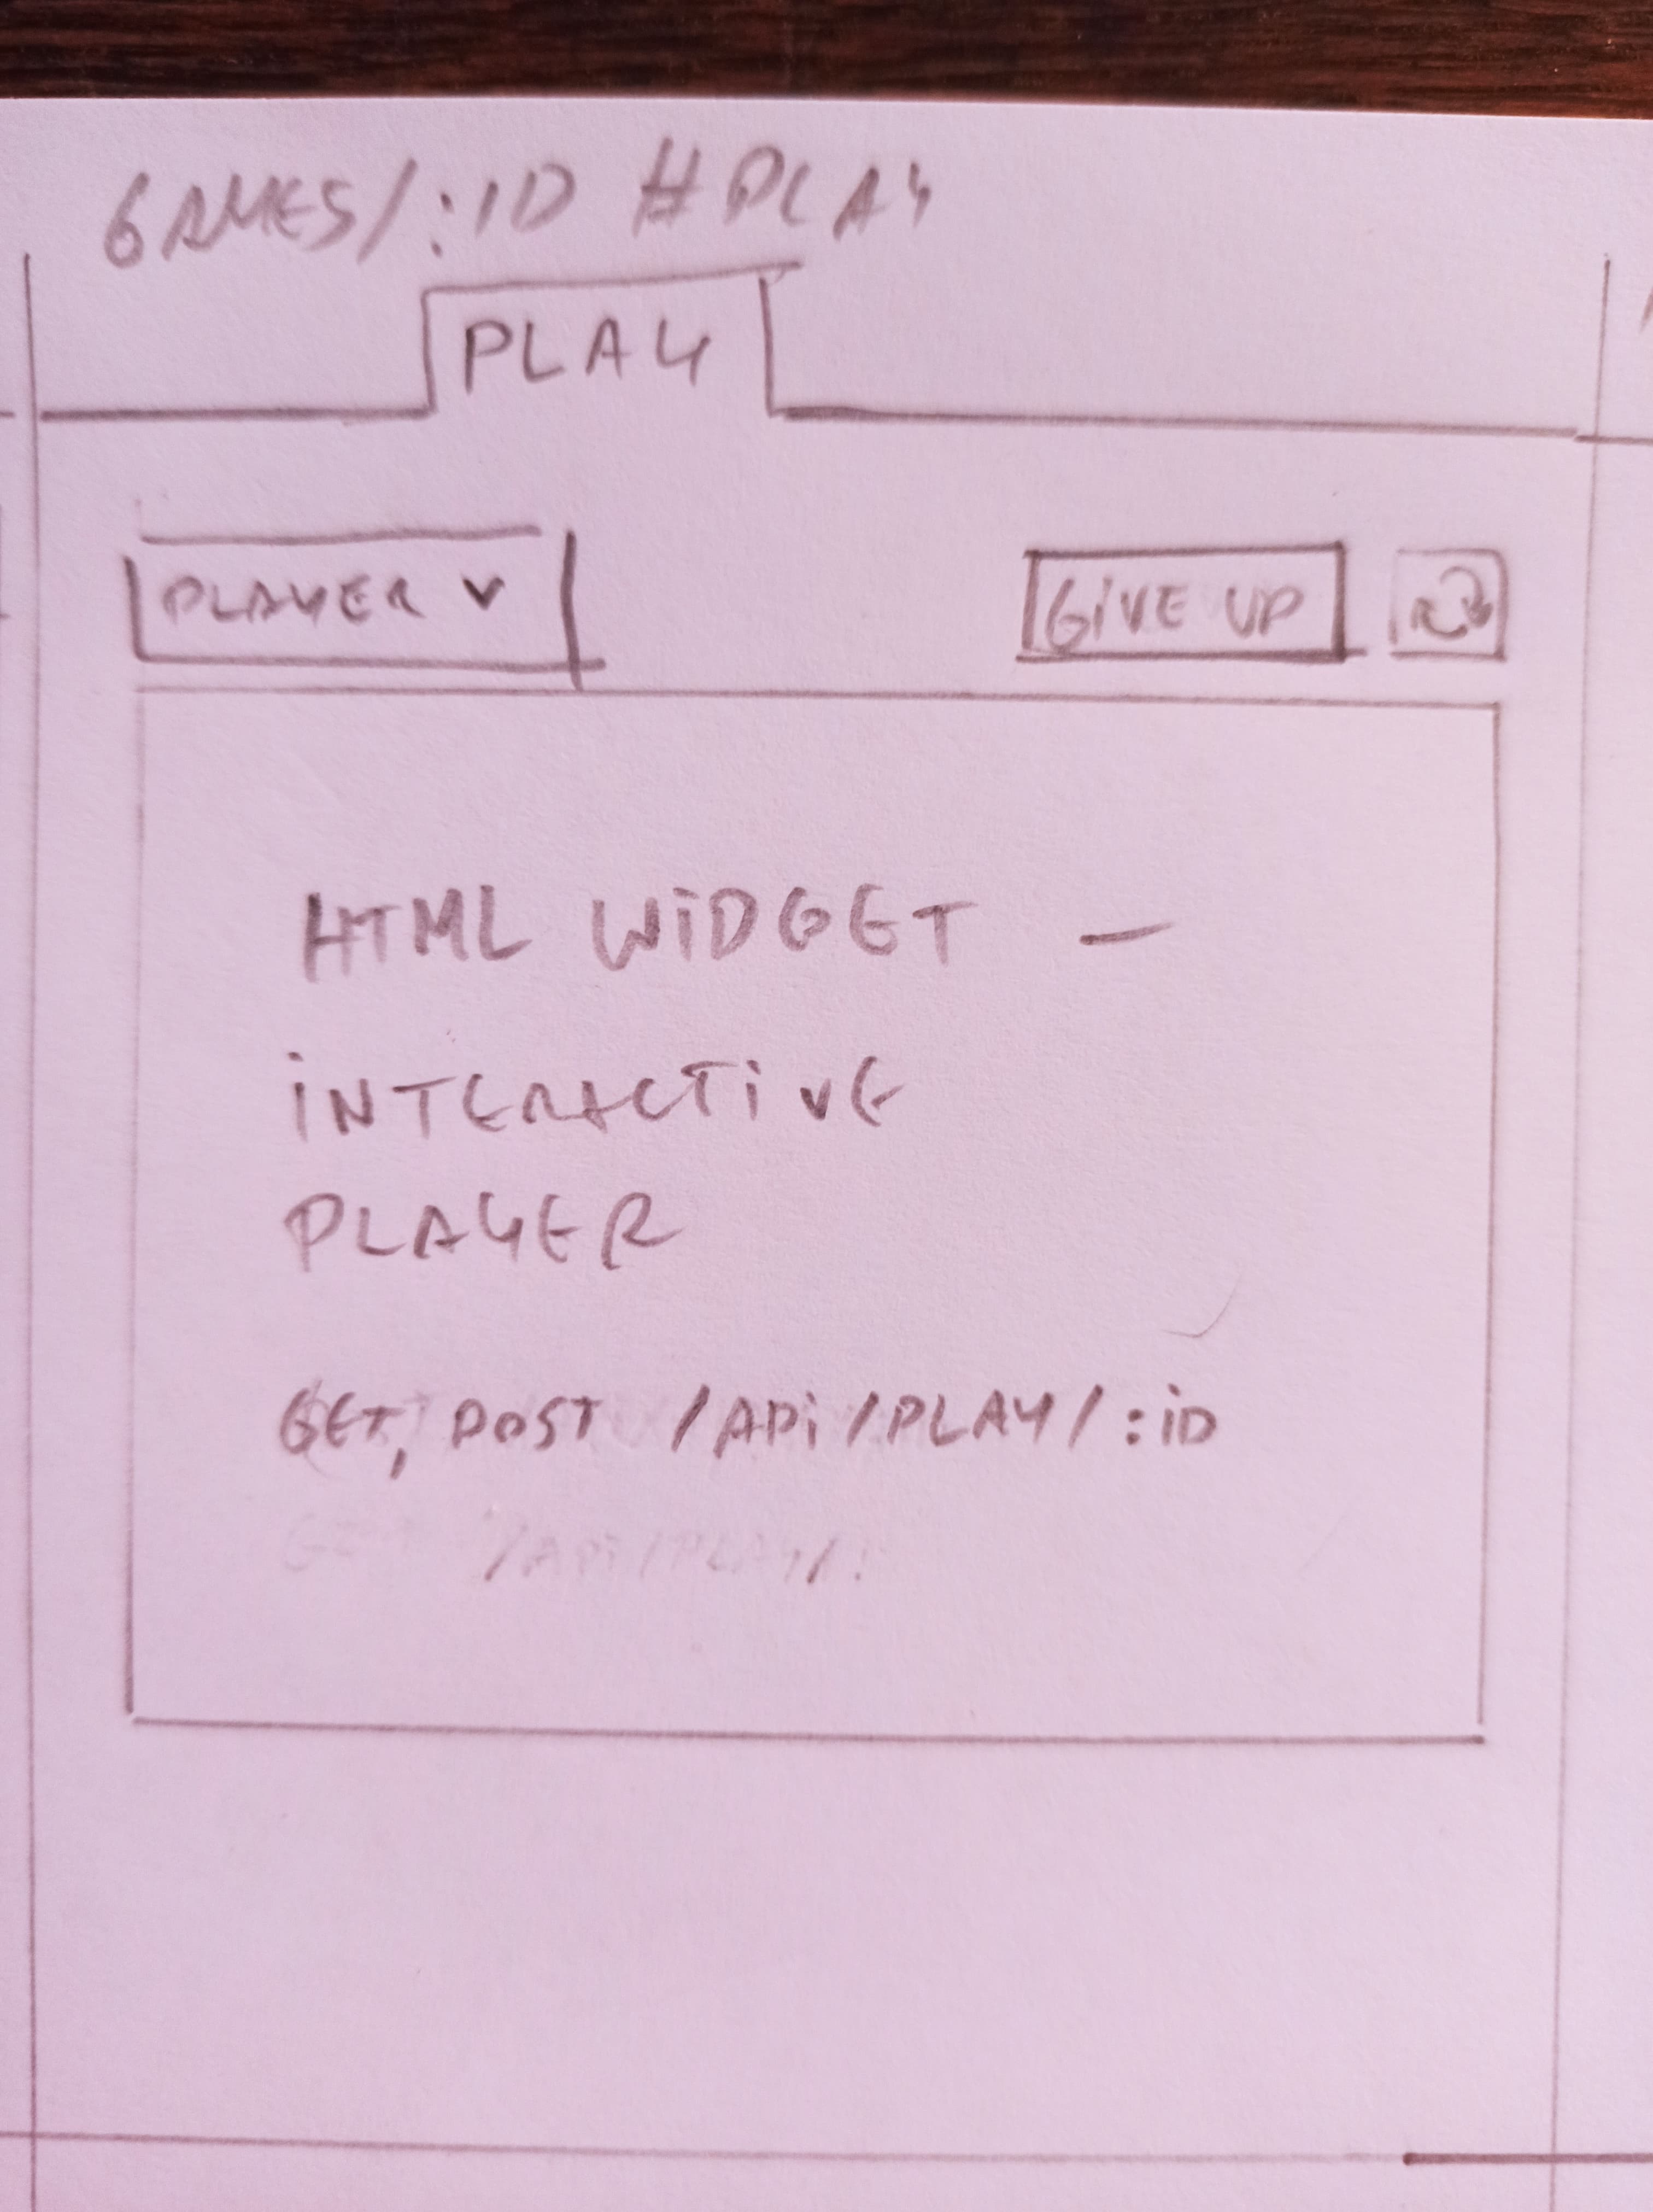 GAMES/:ID #PLAY
PLAY
PLAYER v
GiVE UP
HTML WiDGET —
iNTERACTiVE
PLAYER
GET, POST /APi/PLAY/:iD
GET /APi/PLAY/: